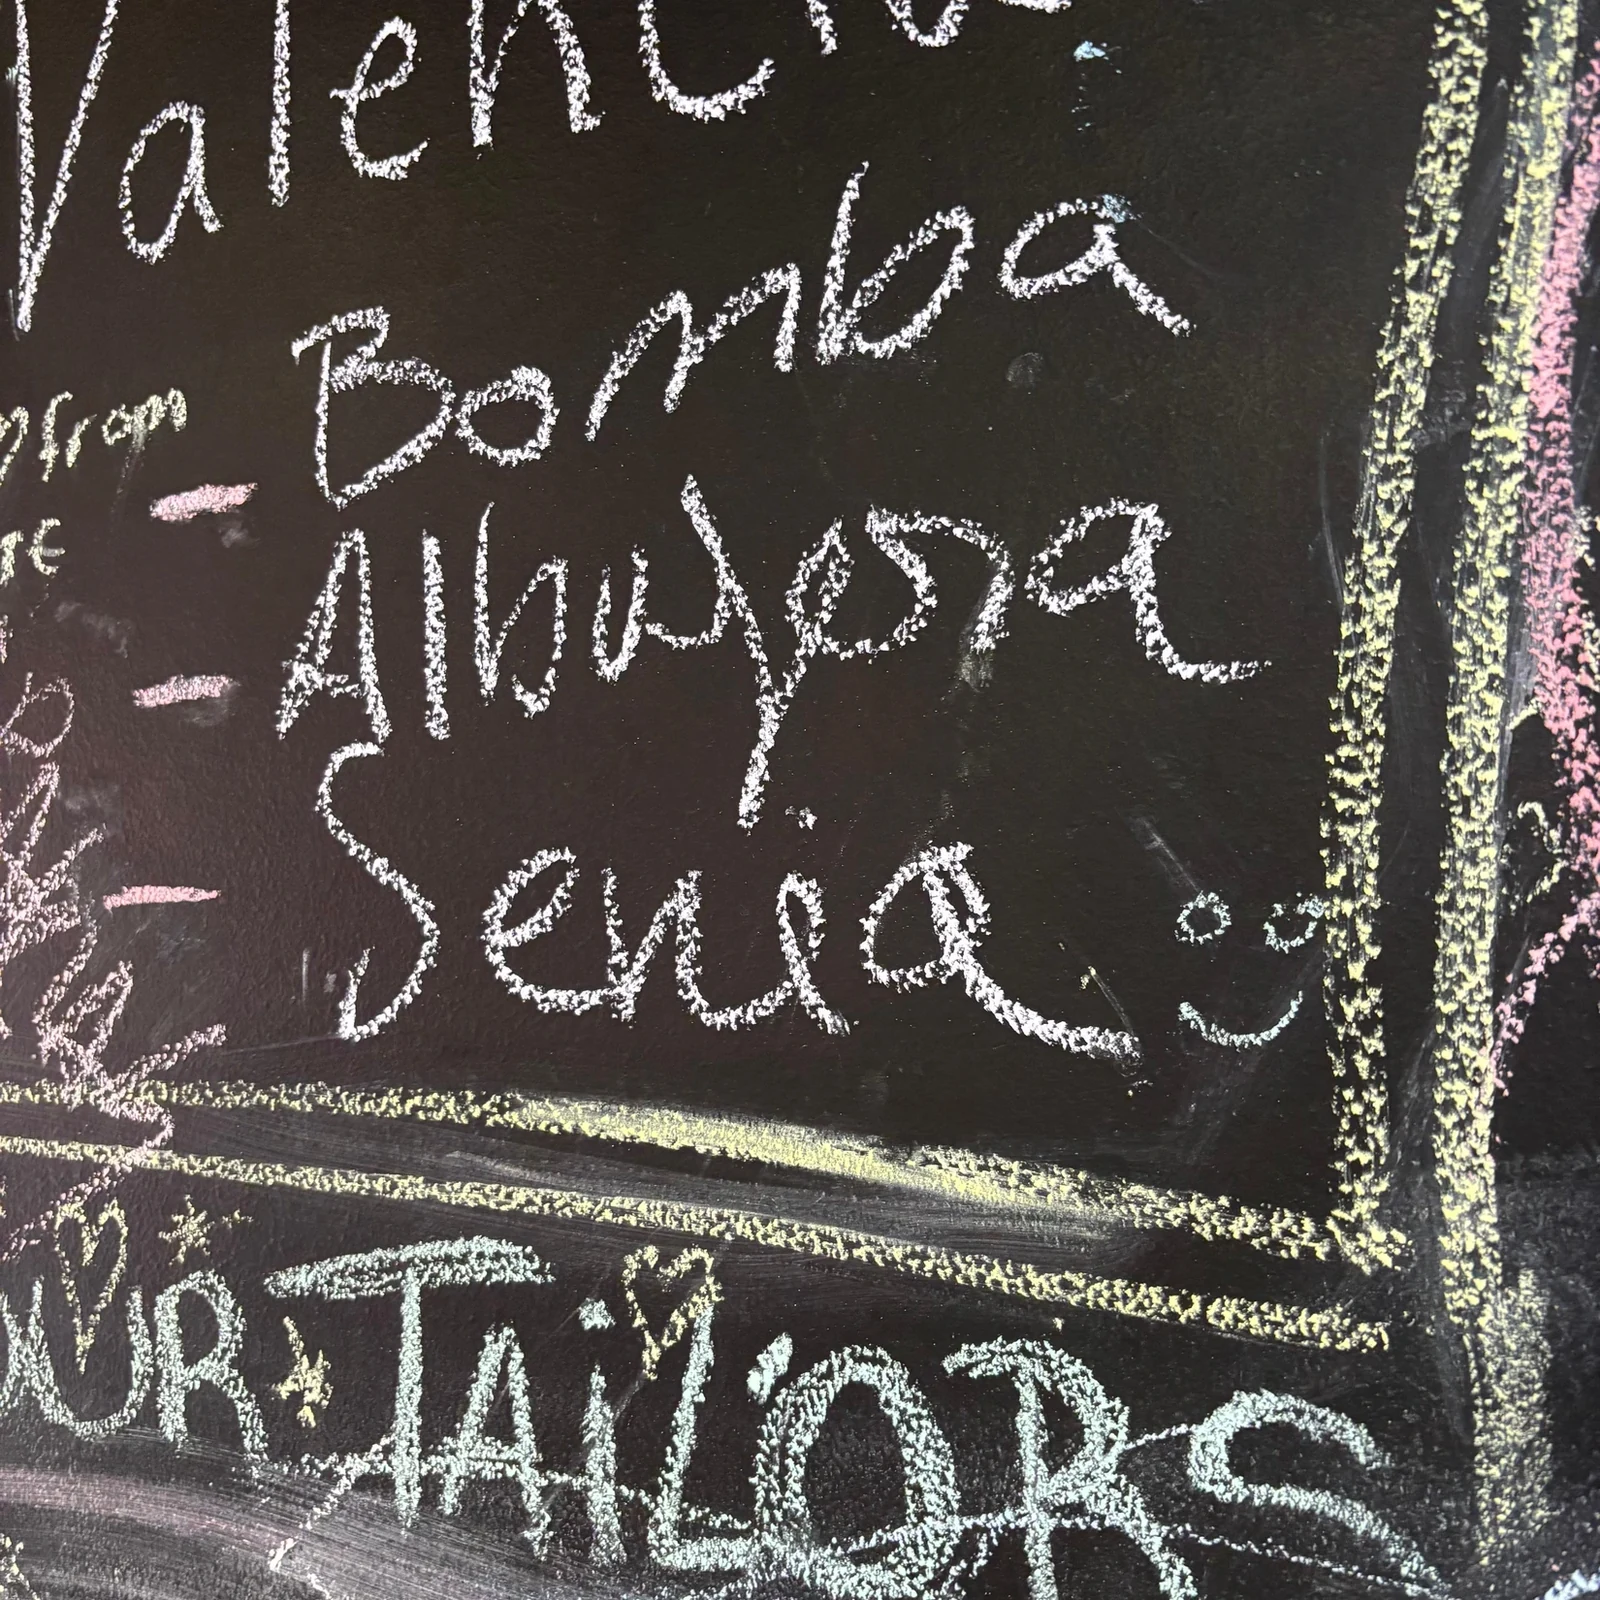 Valencia
from
- Bomba
- Albufera
- Senia
OUR TAiLORS